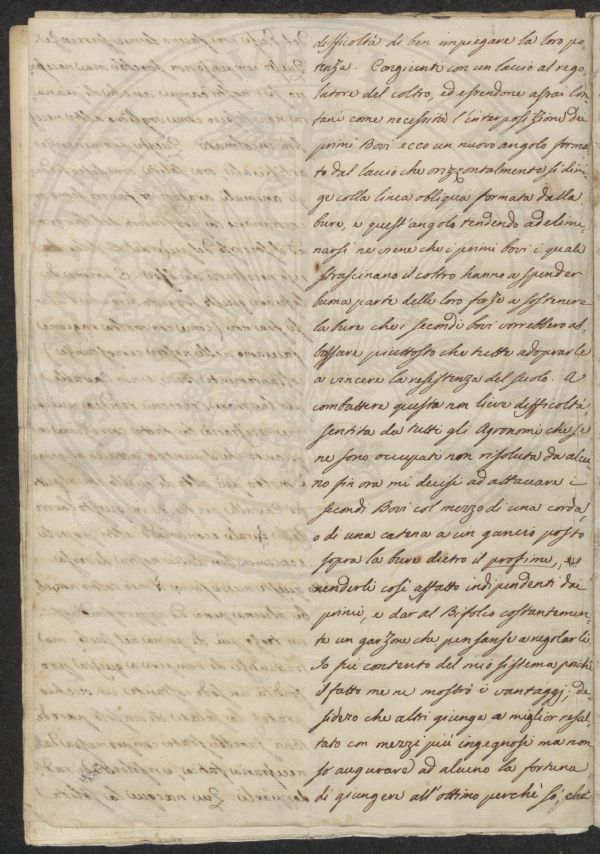 difficoltà di ben impiegare la loro po
tenza. Congiunti con un laccio al rego
latore del coltro, ed essendone assai lon
tani come necessità l'interposizione dei
primi Bovi ecco un nuovo angolo forma
to dal laccio che orizzontalmente si diri
ge colla linea obliqua formata dalla
bure, e quest'angolo tendendo ad elimi
narsi ne viene che i primi bovi i quali
strascinano il coltro hanno a spender
buona parte delle loro forze a sostenere
la bure che i secondi bovi vorrebbero ab
bassare piuttosto che tutte adoprarle
a vincere la resistenza del suolo. A
combattere questa non lieve difficoltà
sentita da tutti gli Agronomi che se
ne sono occupati non risoluta da alcu
no fin ora mi decisi ad attaccare i
secondi Bovi col mezzo di una corda,
o di una catena a un gancio posto
sopra la bure dietro il profime,
renderli così affatto indipendenti dai
primi, e dar al Bifolco costantemen
te un garzone che pensasse a regolarli
Io fui contento del mio sistema poichè
il fatto me ne mostrò i vantaggj; de
sidero che altri giunga a miglior resul
tato con mezzi più ingegnosi ma non
so augurare ad alcuno la fortuna
di giungere all'ottimo perchè so, che